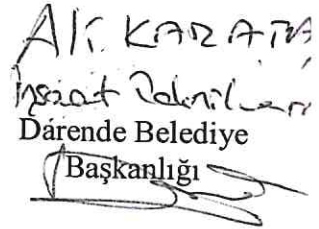 Ali KARATAŞ
İnşaat Teknikeri
Darende Belediye
Başkanlığı